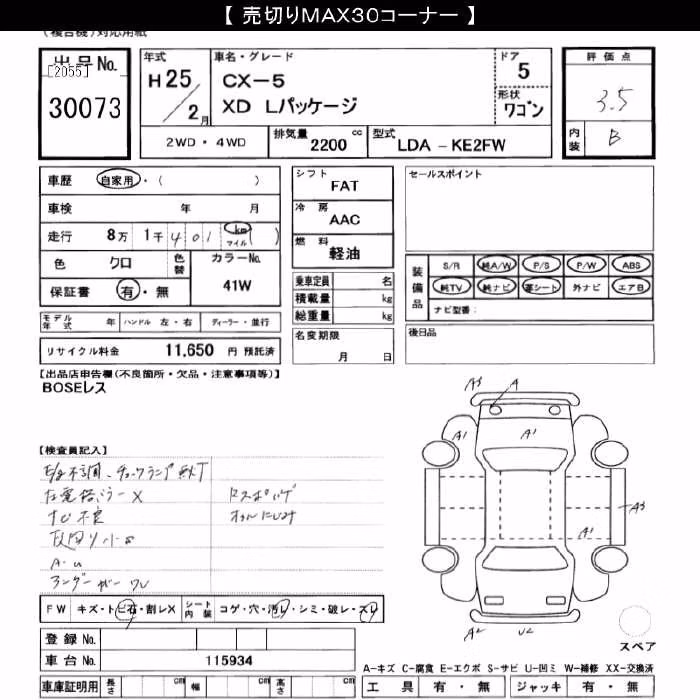 【 売切りMAX30コーナー 】
(複合機)対応用紙
出品No.
[2055]
30073
年式
H25/2月
車名・グレード
CX-5
XD Lパッケージ
ドア
5
形状
ワゴン
評価点
3.5
内装
B
2WD・4WD
排気量 2200 cc
型式 LDA-KE2FW
車歴 自家用・( )
車検 年 月
走行 8万 1千 401 km マイル ( )
色 クロ 色替
カラーNo.
41W
保証書 有・無
シフト
FAT
冷房
AAC
燃料
軽油
乗車定員 名
積載量 kg
総重量 kg
セールスポイント
装備品
S/R 純A/W P/S P/W ABS
純TV 純ナビ 革シート 外ナビ エアB
ナビ型番:
モデル年式 年 ハンドル 左・右 ディーラー・並行
リサイクル料金 11,650 円 預託済
名変期限
月 日
後日品
【出品店申告欄(不良箇所・欠品・注意事項等)】
BOSEレス
【検査員記入】
E/g不調、チェックランプ点灯
左電格ミラーX
ナビ不良
A・U
アンダーカバーワレ
A3 A
A1 A1
A3
A1
A2 U2
FW キズ・トビ石・割レX
シート内装 コゲ・穴・汚レ・シミ・破レ・スレ
登録No.
車台No. 115934
車庫証明用 長さ cm 幅 cm 高さ cm
スペア
A-キズ C-腐食 E-エクボ S-サビ U-凹ミ W-補修 XX-交換済
工具 有・無 ジャッキ 有・無